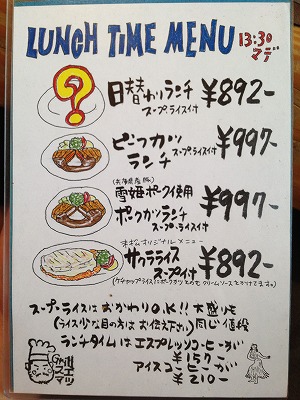 LUNCH TIME MENU 13:30
マデ
日替わりランチ ¥892-
スープ.ライス付
ビーフカツ ¥997-
ランチ スープ.ライス付
(兵庫県産豚)
雪姫ポーク使用 ¥997-
ポークカツランチ
スープ.ライス付
オリジナルメニュー
サカライス ¥892-
スープ付
(ケチャップライスにポークカツ クリームソースをかけてます。)
スープ・ライスはおかわりO.K!! 大盛りも
(ライス少な目の方はお伝え下さい) 同じ価格
ランチタイムはエスプレッソコーヒーが
¥157-
アイスコーヒーが
¥210-
Grill